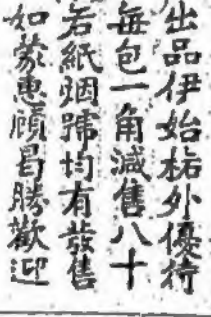 出品伊始格外優待
每包一角減售八十
若紙烟號均有發售
如蒙惠顧曷勝歡迎